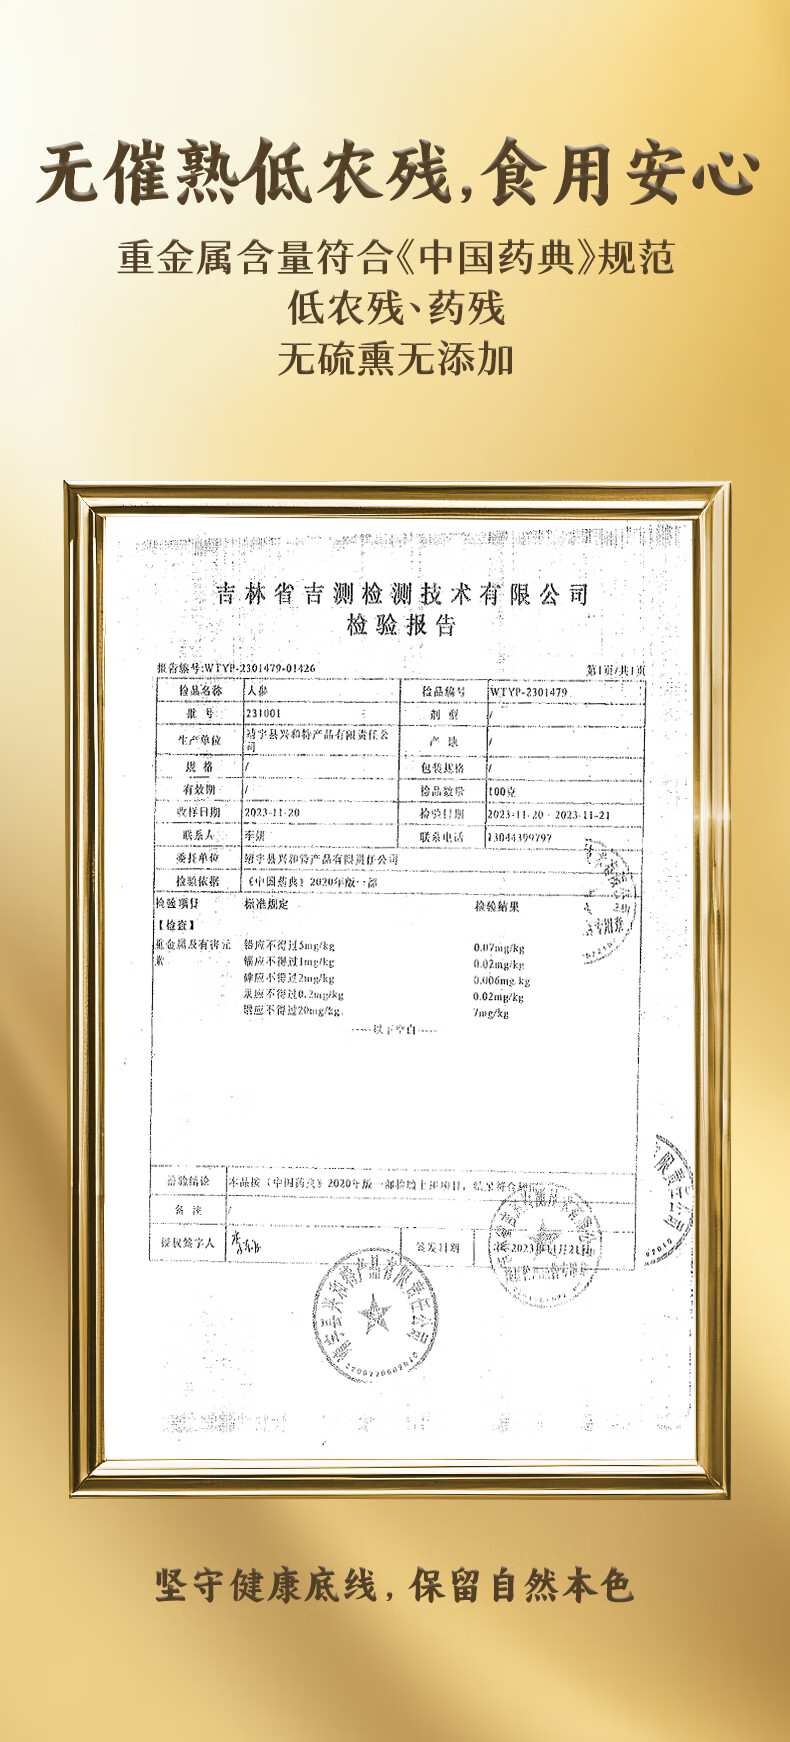 无催熟低农残,食用安心
重金属含量符合《中国药典》规范
低农残、药残
无硫熏无添加
吉林省吉测检测技术有限公司
检验报告
报告编号:WTYP-2301479-01426 第1页/共1页
检品名称 人参 检品编号 WTYP-2301479
批 号 231001 剂 型 /
生产单位 靖宇县兴和特产品有限责任公司 产 地 /
规 格 / 包装规格 /
有效期 / 检品数量 100克
收样日期 2023-11-20 检验日期 2023-11-20 - 2023-11-21
联系人 李妍 联系电话 13044399797
委托单位 靖宇县兴和特产品有限责任公司
检验依据 《中国药典》2020年版一部
检验项目 标准规定 检验结果
【检查】
重金属及有害元素 铅应不得过5mg/kg 0.07mg/kg
镉应不得过1mg/kg 0.02mg/kg
砷应不得过2mg/kg 0.006mg/kg
汞应不得过0.2mg/kg 0.02mg/kg
铜应不得过20mg/kg 7mg/kg
-----以下空白-----
检验结论 本品按《中国药典》2020年版一部检验上述项目,结果符合规定
备 注 /
授权签字人 签发日期 2023年11月21日
靖宇县兴和特产品有限责任公司
坚守健康底线,保留自然本色